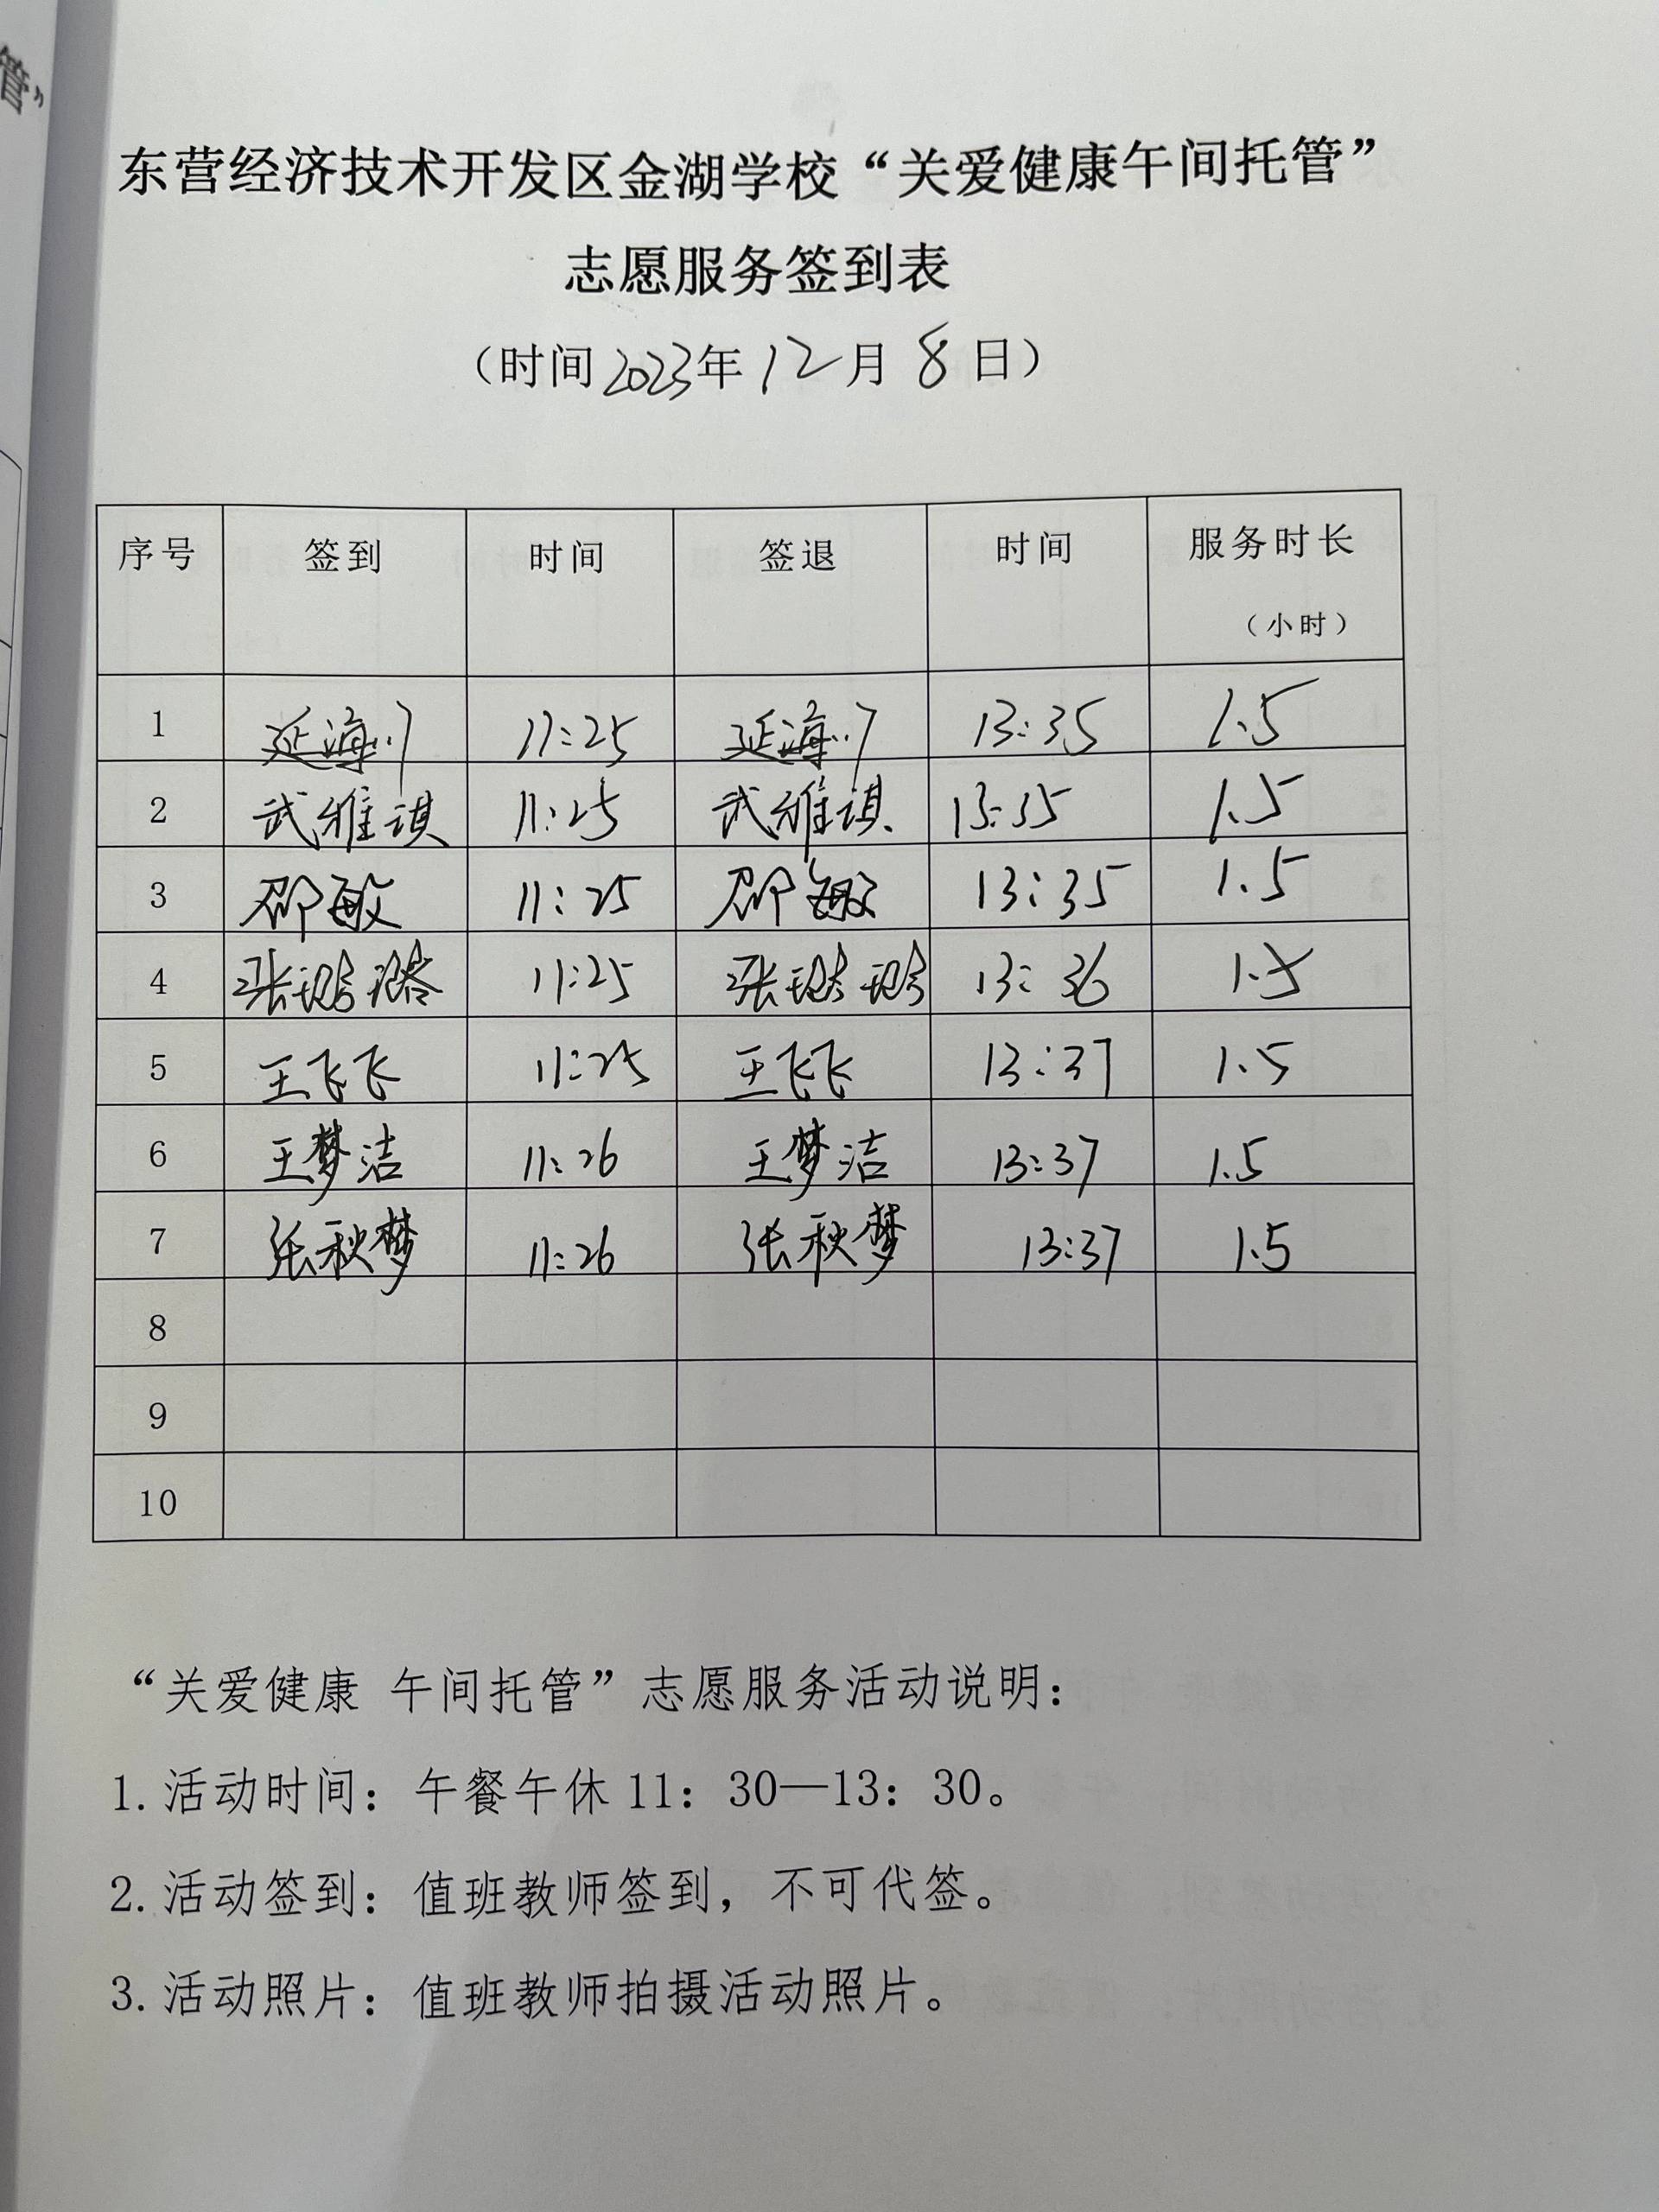 管”
东营经济技术开发区金湖学校“关爱健康午间托管”
志愿服务签到表
（时间2023年12月8日）
序号 签到 时间 签退 时间 服务时长
（小时）
1 延海 11:25 延海 13:35 1.5
2 武雅琪 11:25 武雅琪 13:35 1.5
3 邵敏 11:25 邵敏 13:35 1.5
4 张 11:25 张 13:36 1.5
5 王飞飞 11:25 王飞飞 13:37 1.5
6 王梦洁 11:26 王梦洁 13:37 1.5
7 张秋梦 11:26 张秋梦 13:37 1.5
8
9
10
“关爱健康 午间托管”志愿服务活动说明：
1.活动时间：午餐午休11：30—13：30。
2.活动签到：值班教师签到，不可代签。
3.活动照片：值班教师拍摄活动照片。